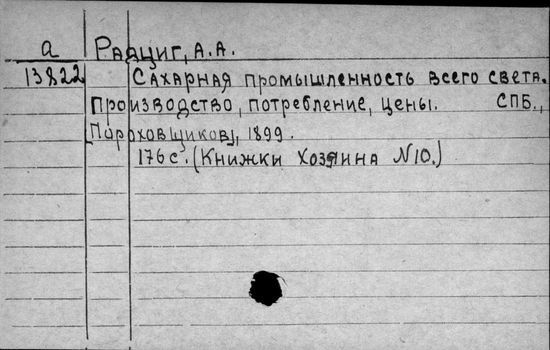 а Радциг, А.А.
13822 Сахарная промышленность всего света.
Производство, потребление, цены. СПБ.,
Пороховщиков, 1899.
176 с. (Книжки Хозяина N10.)